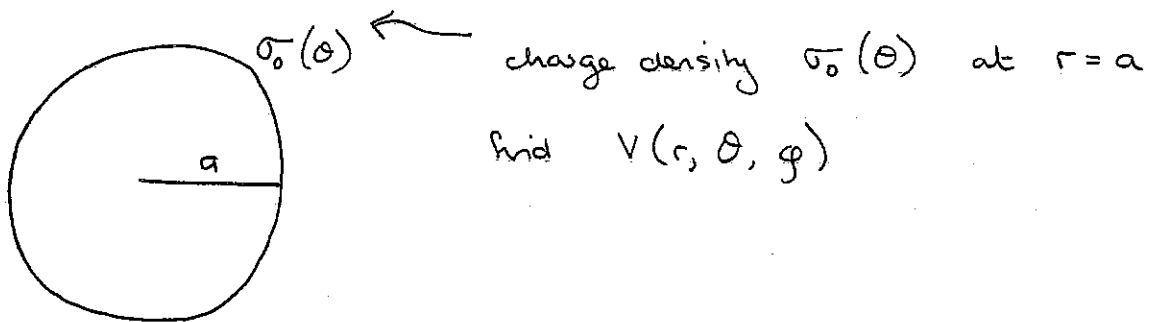 σ₀(θ) charge density σ₀(θ) at r = a
find V(r, θ, φ)
a